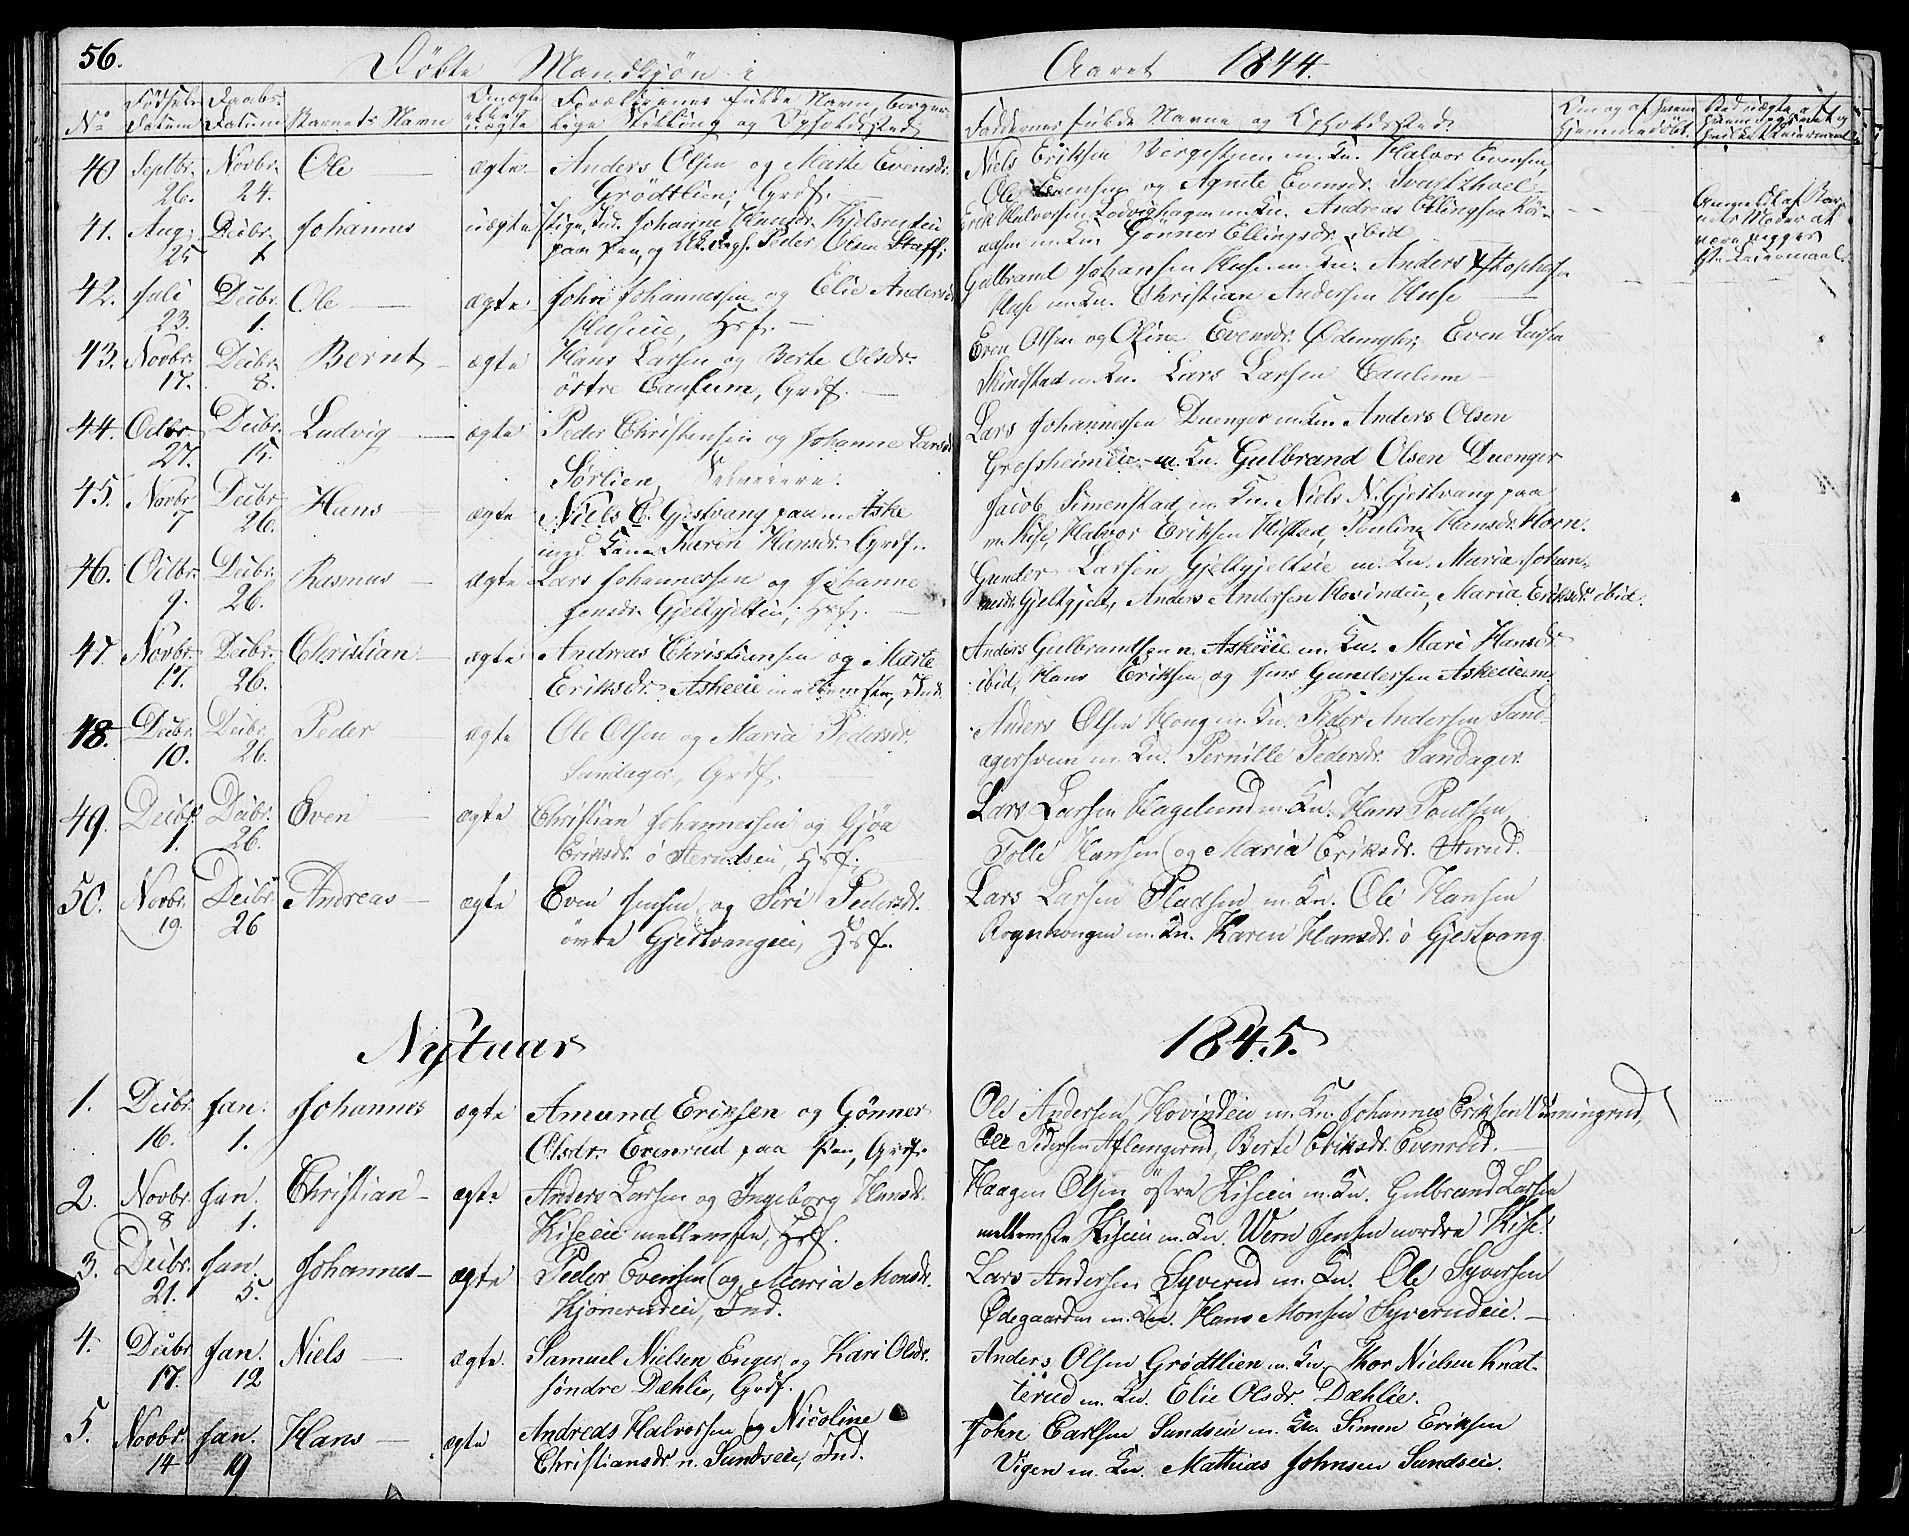 56.
Döbte Mandkjön i Aaret 1844.
No
Fødsels Datum
Daabs Datum
Barnets Navn
Om ægte eller uægte
Forældrenes fulde Navn, borgerlige Stilling og Opholdssted
Faddernes fulde Navne og Opholdssted
40 Septbr. 26. Novbr. 24. Ole ægte
Anders Olsen og Marte Evensdr.
Grödtlien, Grdf.
Niels Eriksen Bergesteen m. Kn. Halvor Evensen,
Ole Evensen og Agnete Evensdr.
41. Aug. 25 Decbr. 1 Johannes uægte
Pige, Ind. Johanne Hansdr.
paa Pen, og Peder Olsen Staff.
Erik Halvorsen m. Kn. Andreas Ellingsen
m. Kn. Gönner Ellingsdr. ibid
42. Juli 23. Decbr. 1. Ole ægte
John Johannessen og Elie Andersdr.
Huseie, Hsf.
Gulbrand Johansen Huse m. Kn. Anders
Huse m. Kn. Christian Andersen Huse
43. Novbr. 17. Decbr. 8. Bernt ægte
Hans Larsen og Berte Olsdr.
östre Caulum, Grdf.
Even Olsen og Oline Evensdr. Ødemyhr, Even Larsen
Skindstad m. Kn. Lars Larsen Caulum
44. Octbr 27. Decbr. 15. Ludvig ægte
Peder Christensen og Johanne Larsdr
Sörlien, Selveiere.
Lars Johannessen Duenger m. Kn. Anders Olsen
Grefsheimeie m. Kn. Gulbrand Olsen Duenger
45. Novbr 7 Decbr 26. Hans ægte
Niels E. Gjestvang paa m. Aske
med Kone Karen Hansdr. Grdf.
Jacob Simenstad m. Kn. Niels N. Gjestvang paa
m. Kise, Halvor Eriksen Hißtad, Pouline Hansdr. Horn.
46. Octbr. 9. Decbr. 26. Rasmus ægte
Lars Johannessen og Johanne
Jensdr. Gjeltjelteie, Hsf.
Gunder Larsen Gjeltjelteie m. Kn. Maria Johan-
nesdr. Gjeltjelt, Anders Andersen Hovindeie, Maria Eriksdr. ibid.
47. Novbr. 17. Decbr. 26. Christian ægte
Andreas Christiansen og Marte
Eriksdr. Askeeie mellemste, Ind.
Anders Gulbrandsen n. Askeeie m. Kn. Mari Hansdr
ibid, Hans Eriksen og Jens Gundersen Askeeie m.
48. Decbr. 10. Decbr. 26. Peder ægte
Ole Olsen og Maria Pedersdr.
Sandager, Grdf.
Anders Olsen Houg m. Kn. Peder Andersen Sand-
agersveen m. Kn. Pernille Pedersdr. Sandager.
49. Decbr. 1. Decbr. 26. Even ægte
Christian Johannessen og Gjöa
Eriksdr. ö Sterudseie, Hsf.
Lars Larsen Hagelund m. Kn. Hans Poulsen,
Tolle Hansen og Maria Eriksdr. Sterud.
50. Novbr. 19. Decbr. 26 Andreas ægte
Even Jensen og Siri Pedersdr.
övre Gjestvangeie, Hsf.
Lars Larsen Pladsen m. Kn. Ole Hansen
m. Kn. Karen Hansdr. ö Gjestvang.
Nytaar 1845.
1. Decbr. 16. Jan. 1. Johannes ægte
Amund Eriksen og Gönner
Olsdr. Evenrud paa Pen, Grdf.
Ole Andersen Hovindeie m. Kn. Johannes Eriksen
Ole Pedersen Aflangerud, Berte Eriksdr. Evenrud.
2. Novbr. 8 Jan. 1. Christian ægte
Anders Larsen og Ingeborg Hansdr.
Kiseeie mellemste, Hsf.
Haagen Olsen östre Kiseeie m. Kn. Gulbrand Larsen
mellemste Kiseeie m. Kn. Wern Jensen nordre Kise.
3. Decbr. 21. Jan. 5. Johannes ægte
Peder Evensen og Maria Monsdr.
Kjönerudeie, Ind.
Lars Andersen Syverud m. Kn. Ole Syversen
Ødegaarden m. Kn. Hans Monsen Syverudeie.
4. Decbr 17. Jan. 12 Niels ægte.
Samuel Nielsen Enger og Kari Olsdr.
söndre Dæhlie, Grdf.
Anders Olsen Grödtlien m. Kn. Thor Nielsen Knat-
terud m. Kn. Elie Olsdr. Dæhlie.
5. Novbr. 14 Jan. 19 Hans ægte
Andreas Halvorsen og Nicoline
Christiansdr. n. Sundseie, Ind.
John Carlsen Sundseie m. Kn Simen Eriksen
Vigen m. Kn. Mathias Johnsen Sundseie.